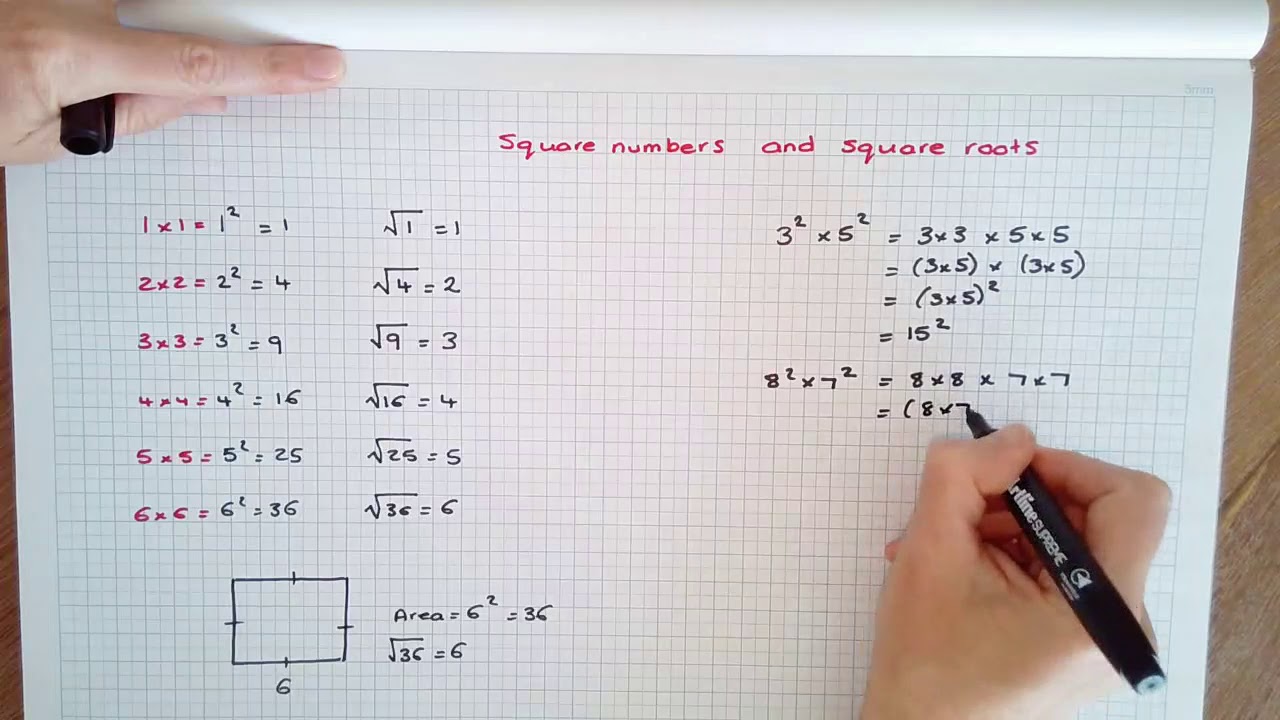 5mm
Square numbers and square roots
1×1 = 1² = 1 √1 = 1
2×2 = 2² = 4 √4 = 2
3×3 = 3² = 9 √9 = 3
4×4 = 4² = 16 √16 = 4
5×5 = 5² = 25 √25 = 5
6×6 = 6² = 36 √36 = 6
Area = 6² = 36
√36 = 6
6
3² × 5² = 3×3 × 5×5
= (3×5) × (3×5)
= (3×5)²
= 15²
8² × 7² = 8×8 × 7×7
= (8×7
SUPREME